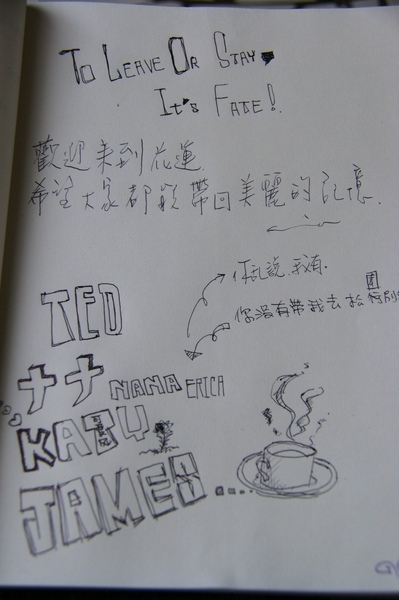 To Leave Or Stay,
It's Fate!
歡迎來到花蓮
希望大家都能帶回美麗的記憶.
你亂說.我有.
你沒有帶我去松園
TED
ナナ NANA ERICA
KABY
JAMES.....